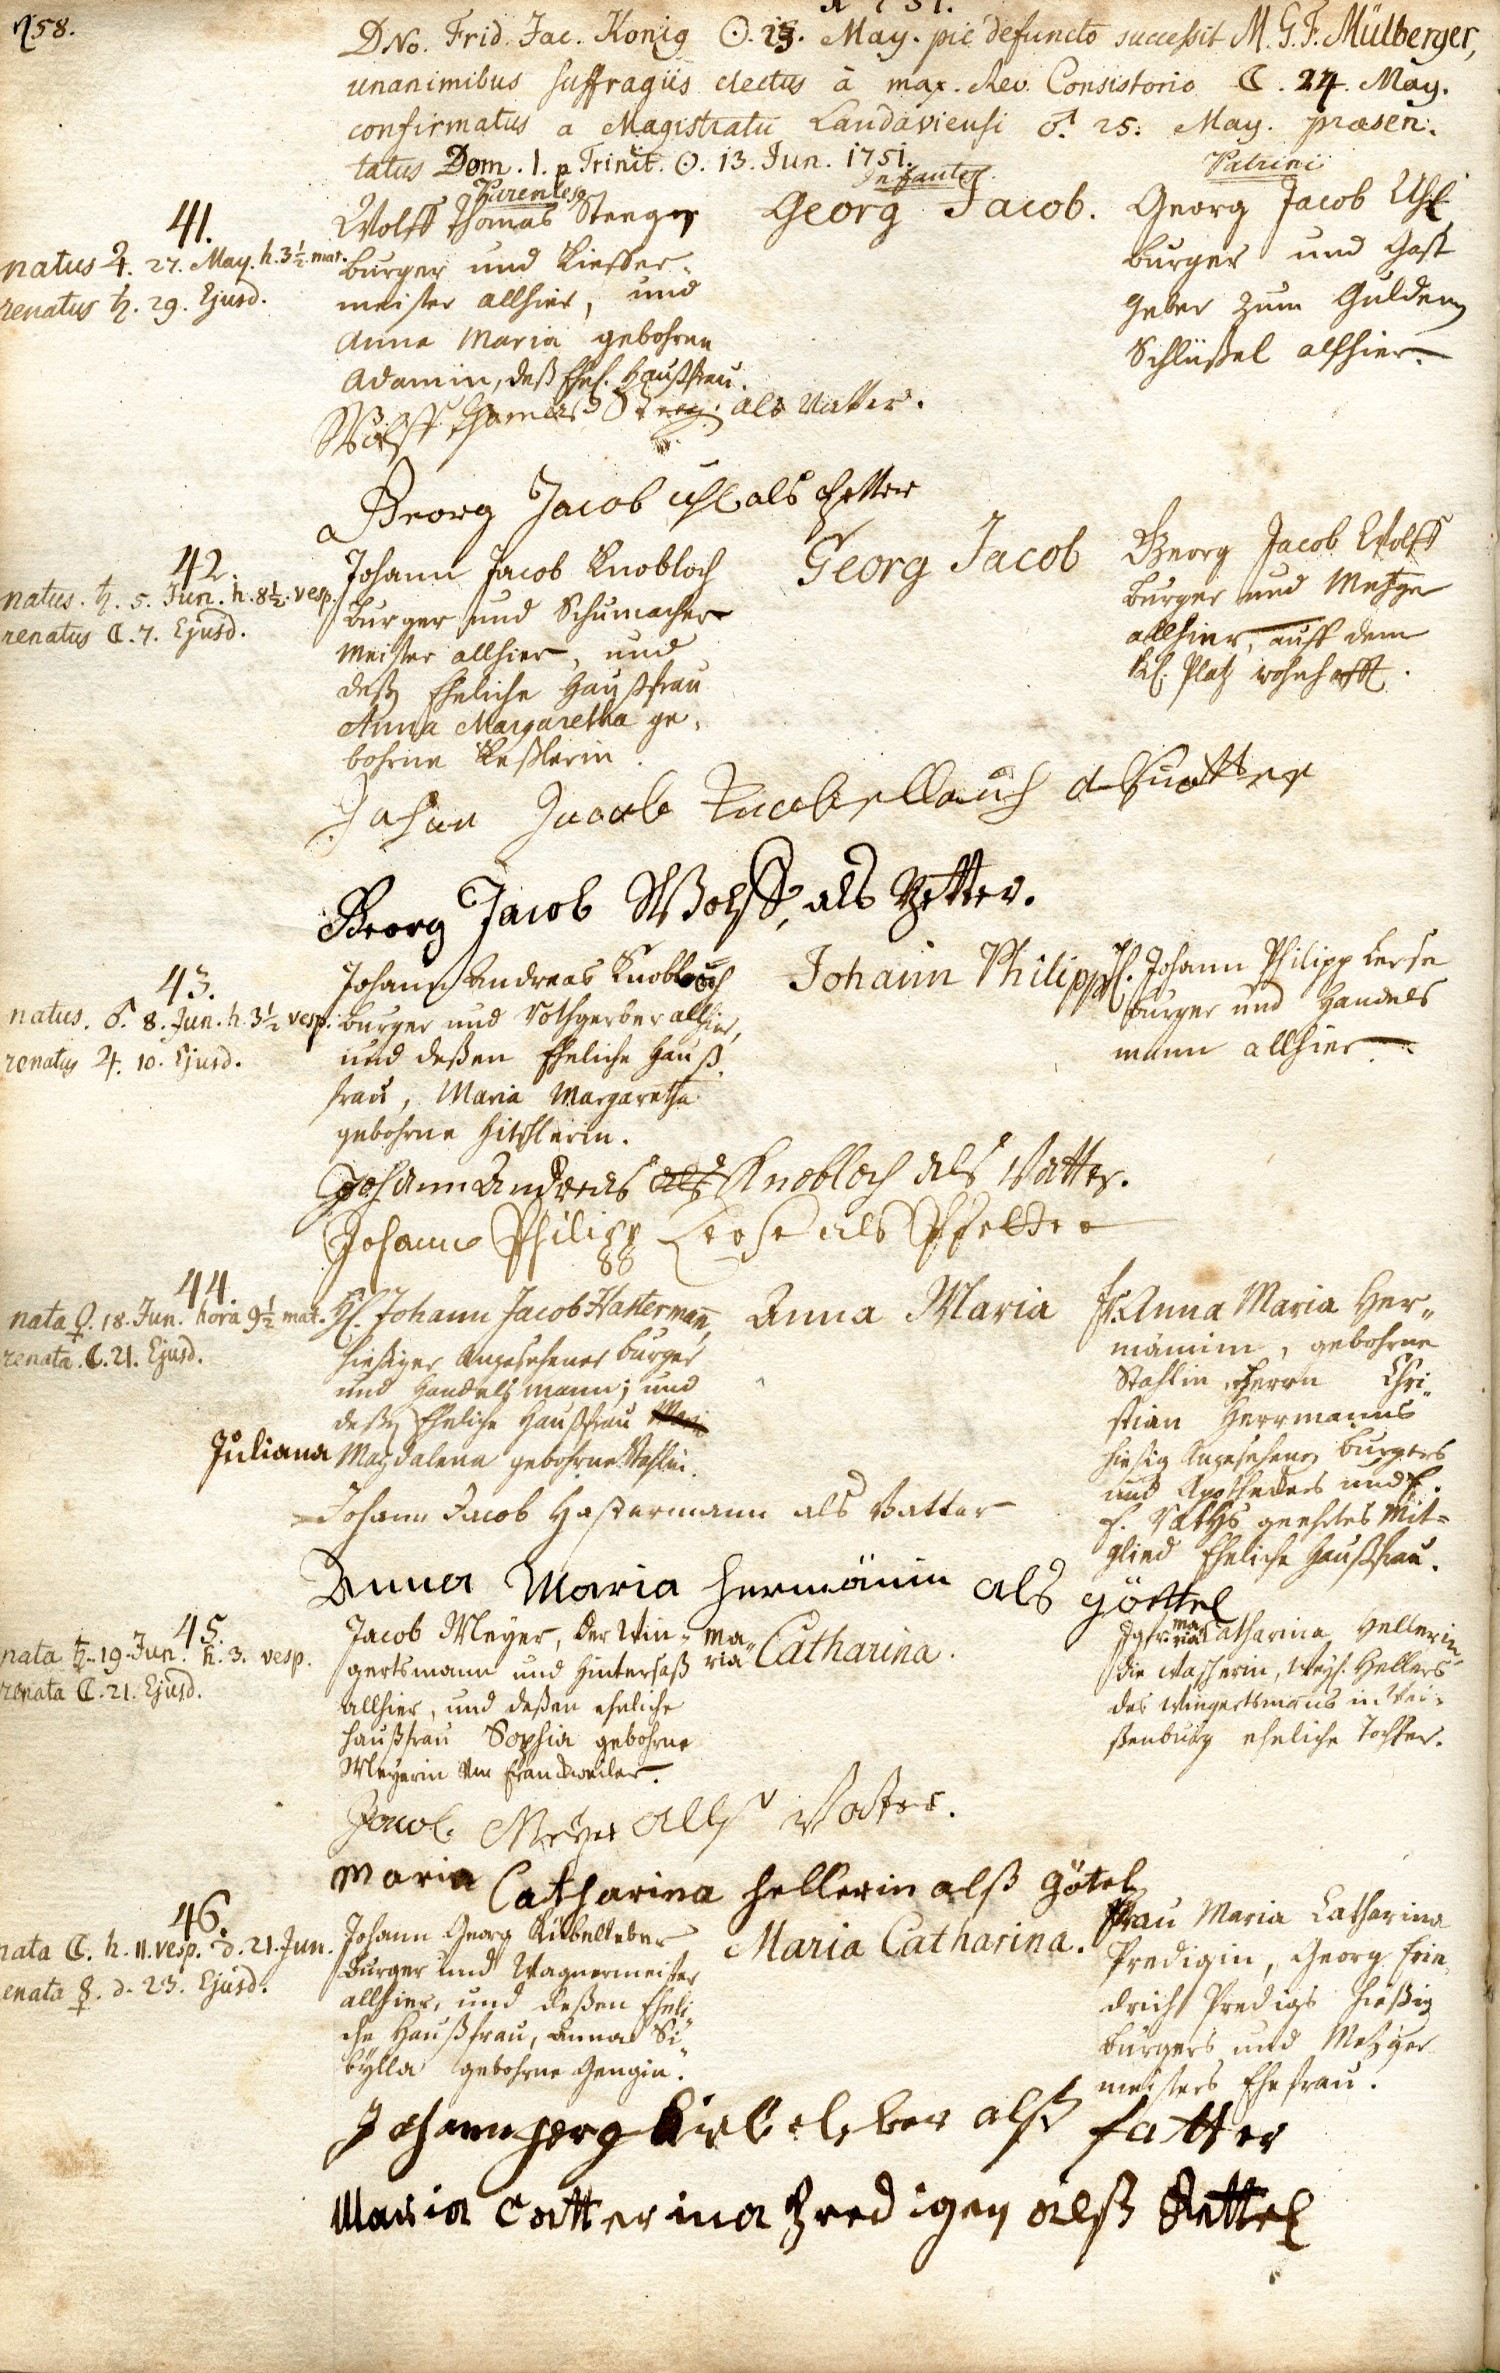 758.
1751.
DNo. Frid. Jac. König ☉. 23. May. piè defuncto successit M. G. F. Mülberger,
unanimibus suffragiis electus à max. Rev. Consistorio ☾. 24. May.
confirmatus a Magistratu Landaviensi ♂. 25. May. præsen-
tatus Dom. 1. p. Trinit. ☉. 13. Jun. 1751.
Parentes
Infantes.
Patrini
41.
natus ♃. 27. May. h. 3½ mat.
renatus ♄. 29. Ejusd.
Wolff Thomas Steeger
burger und Kieffer-
meister allhier, und
Anna Maria gebohrne
Adamin, deß Ehel. Haußfrau.
Georg Jacob.
Georg Jacob Uhl
burger und Gast
geber zum Gulden
Schlüßel allhier.
Wolff Thomas Steeg. als Vatter.
Georg Jacob Uhl als Pfetter
42.
natus ♄. 5. Jun. h. 8½. vesp.
renatus ☾. 7. Ejusd.
Johann Jacob Knobloch
burger und Schumacher
meister allhier, und
deßen Eheliche Haußfrau
Anna Margaretha ge-
bohrne Keßlerin.
Georg Jacob
Georg Jacob Wolff
burger und Metzger
allhier, auff dem
Kl. Platz wohnhafft.
Johan Jacob Knobellauch als Vatter
Georg Jacob Wolff, als Pfetter.
43.
natus. ♂. 8. Jun. h. 3½ vesp.
renatus ♃. 10. Ejusd.
Johann Andreas Knobloch
burger und Rothgerber allhier,
und deßen Eheliche Hauß-
frau, Maria Margaretha
gebohrne Hitschlerin.
Johann Philipp
H. Johann Philipp Lerse
burger und Handels
mann allhier.
Johann Andreas als Knobloch als Vatter.
Johann Philipp Lerse als Pfetter
44.
nata ♀. 18. Jun. hora 9½ mat.
renata. ☾. 21. Ejusd.
H. Johann Jacob Hastermann,
hießiger Angesehener burger
und Handelsmann; und
deßen Eheliche Haußfrau Mari
Juliana Magdalena gebohrne Stahlin.
Anna Maria
Fr. Anna Maria Her-
männin, gebohrne
Stahlin, Herrn Chri-
stian Herrmanns
hießig Angesehenen burgers
und Apotheckers und E.
E. Raths geehrtes Mit-
glied Eheliche Haußfrau.
Johann Jacob Hastermann als Vatter
Anna Maria Hermänin als Göttel
45.
nata ♄. 19. Jun. h. 3. vesp.
renata ☾. 21. Ejusd.
Jacob Meyer, der Win-
gertsmann und Hintersaß
allhier, und deßen eheliche
Haußfrau Sophia gebohrne
Meyerin von Franckweiler.
Maria Catharina.
Jgfr. Maria Catharina Hellerin
die Wascherin, Weyl. Hellers
des Wingertsmanns in Wei-
ßenburg eheliche Tochter.
Jacob Meyer alß Vatter.
Maria Catharina Hellerin alß Götel
46.
nata ☾. h. 11. vesp. d. 21. Jun.
renata ☿. d. 23. Ejusd.
Johann Georg Kübelleber
burger und Wagnermeister
allhier, und deßen Eheli-
che Haußfrau, Anna Si-
bylla gebohrne Gengin.
Maria Catharina.
Frau Maria Catharina
Predigin, Georg Frie-
drich Predigs hießig
burgers und Metzger
meisters Ehefrau.
Johann Jerg Kibeleber alß Fatter
Maria Catterina Bredigen alß Gettel